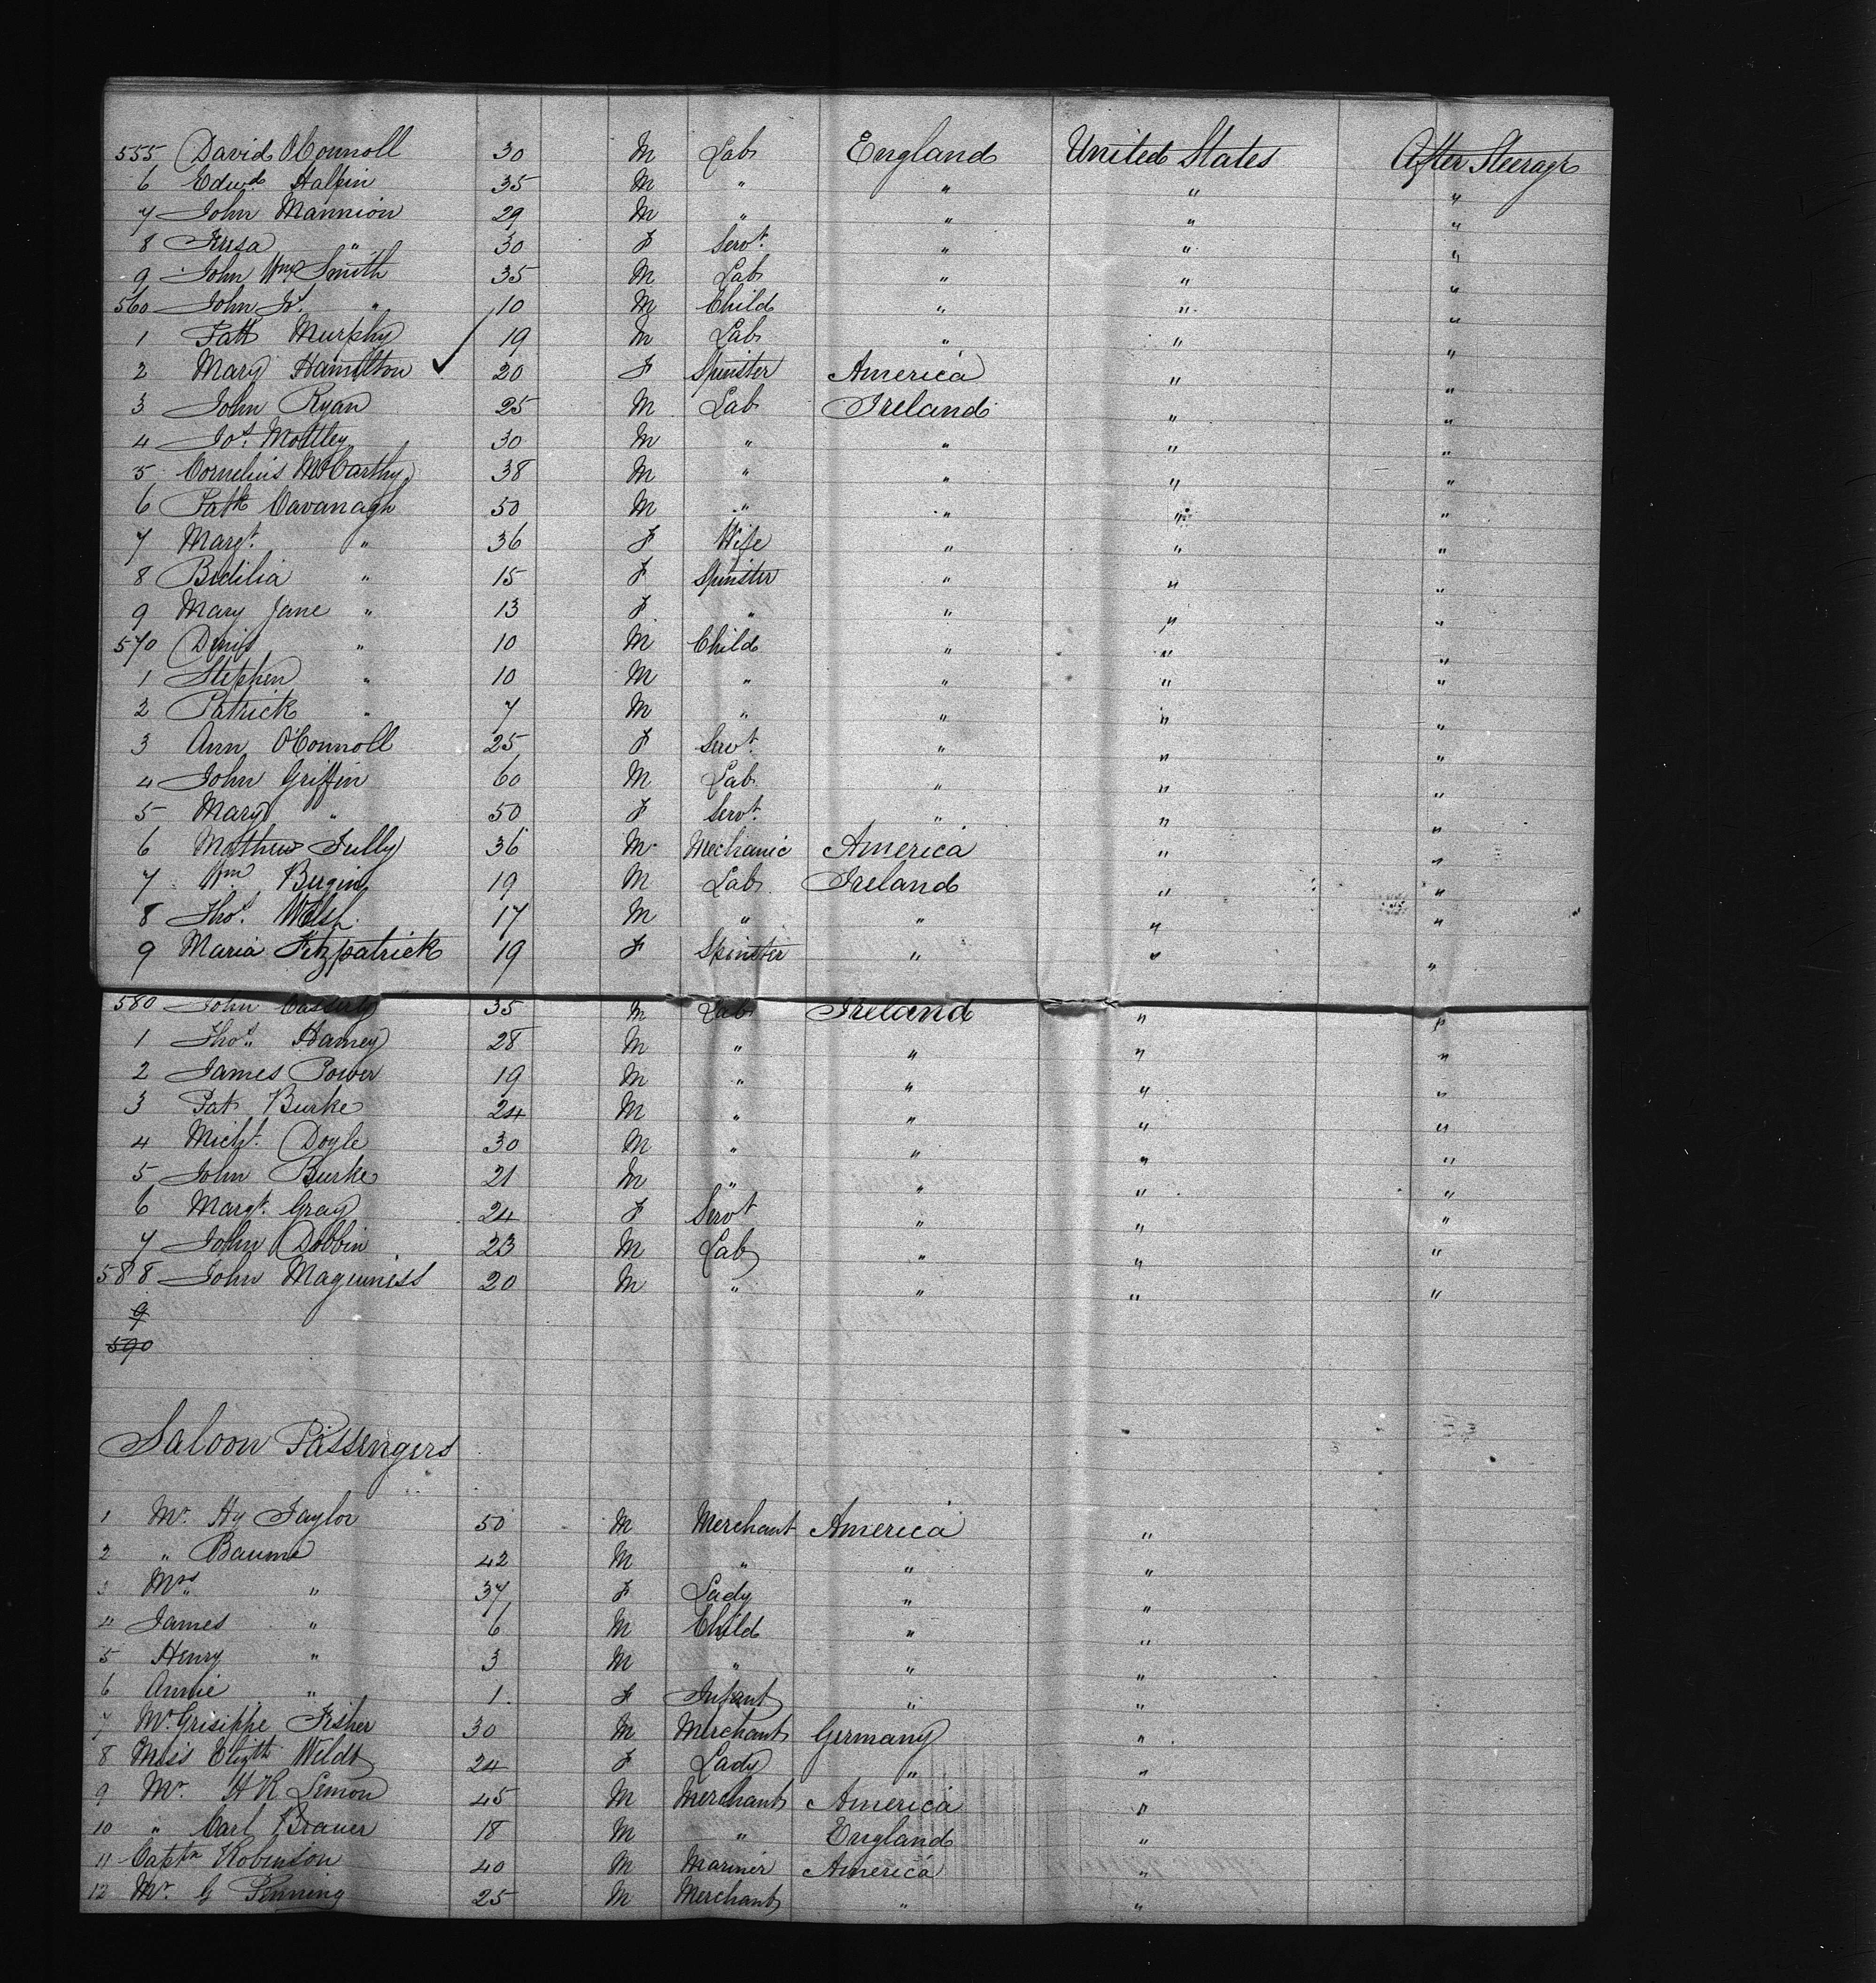 555 David O'Connoll 30 M Lab England United States After Steerage
6 Edwd Halpin 35 M " " " "
7 John Mannion 29 M " " " "
8 " 30 F Servt. " " "
9 John Wm Smith 35 M Lab " " "
560 John Jr. " 10 M Child " " "
1 Patk Murphy 19 M Lab " " "
2 Mary Hamilton ✓ 20 F Spinster America " "
3 John Ryan 25 M Lab Ireland " "
4 Jos. Mottley 30 M " " " "
5 Cornelius McCarthy 38 M " " " "
6 Patk Cavanagh 50 M " " " "
7 Margt. " 36 F Wife " " "
8 Bidilia " 15 F Spinster " " "
9 Mary Jane " 13 F " " " "
570 Denis " 10 M Child " " "
1 Stephen " 10 M " " " "
2 Patrick " 7 M " " " "
3 Ann O'Connoll 25 F Servt. " " "
4 John Griffin 60 M Lab " " "
5 Mary " 50 F Servt. " " "
6 Mathew Tully 36 M Mechanic America " "
7 Wm Bergin 19 M Lab Ireland " "
8 Thos. Welsh 17 M " " " "
9 Maria Fitzpatrick 19 F Spinster " " "
580 John Casserly 35 M Lab Ireland " "
1 Thos. Harney 28 M " " " "
2 James Power 19 M " " " "
3 Pat Burke 24 M " " " "
4 Michl. Doyle 30 M " " " "
5 John Burke 21 M " " " "
6 Margt. Gray 24 F Servt " " "
7 John Dobbin 23 M Lab " " "
588 John Maguiness 20 M " " " "
9
590
Saloon Passengers
1 Mr. Hy Taylor 50 M Merchant America "
2 " Baume 42 M " " "
3 Mrs " 37 F Lady " "
4 James " 6 M Child " "
5 Henry " 3 M " " "
6 Annie " 1 F Infant " "
7 Mr. Grisippe Fisher 30 M Merchant Germany "
8 Miss Elizth Weldt 24 F Lady " "
9 Mr. H R Lemon 45 M Merchant America "
10 " Carl Brauer 18 M " England "
11 Captn Robinson 40 M Mariner America "
12 Mr. G Penning 25 M Merchant " "